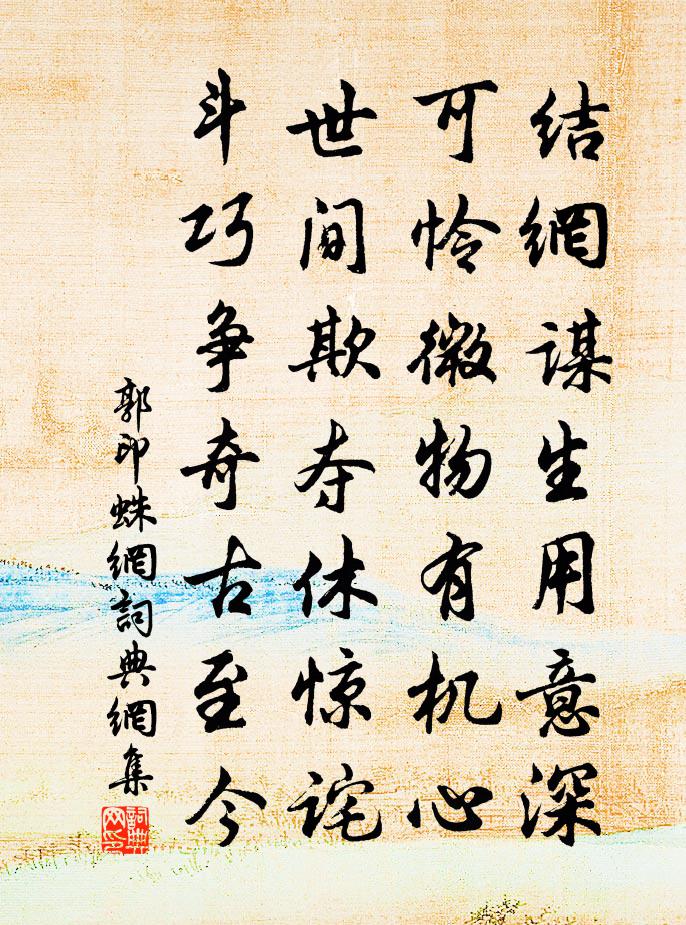 结網谋生用意深
可怜微物有机心
世间欺夺休惊诧
斗巧争奇古至今
郭印蛛網詞典網集
詞典网印